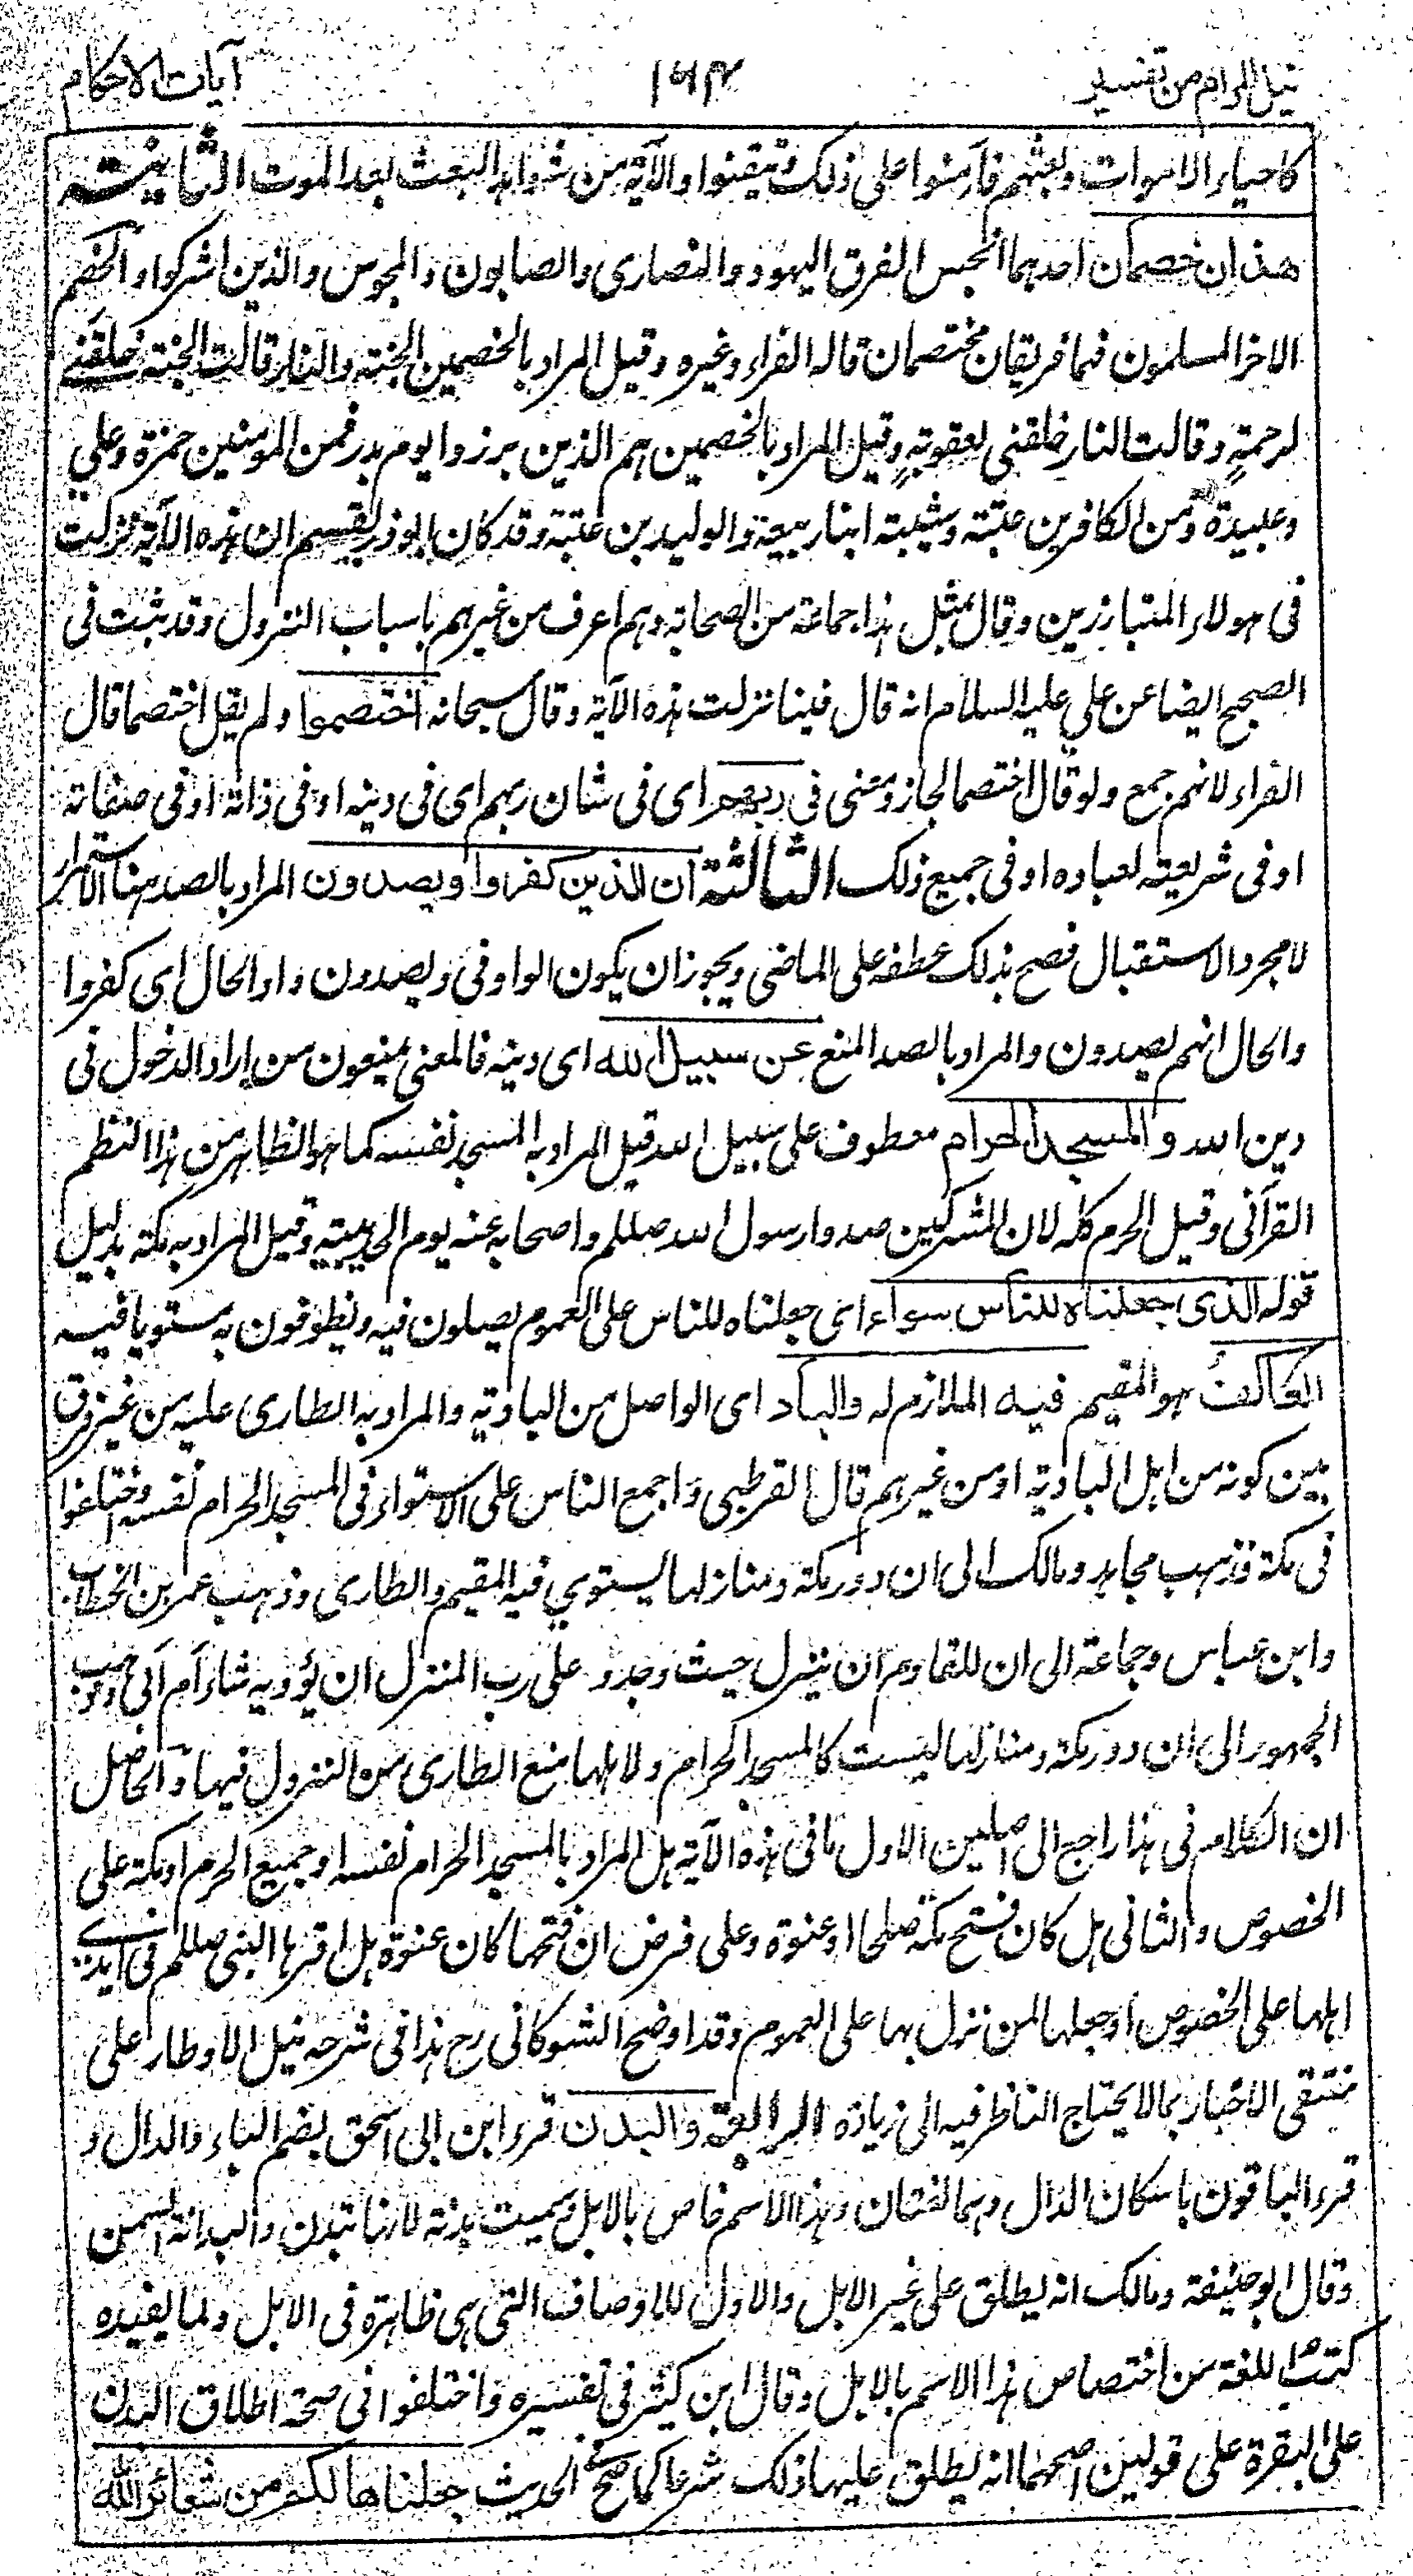 نيل المرام من تفسير ١٦٣ آيات الاحكام
كاحياء الاموات وبعثهم فآمنوا على ذلك وتيقنوا والآية من شواهد البعث بعد الموت الثانية
هذان خصمان احدهما انجس الفرق اليهود والنصارى والصابون والمجوس والذين اشركوا والخصم
الاخر المسلمون فهما فريقان مختصمان قاله الفراء وغيره وقيل المراد بالخصمين الجنة والنار قالت الجنة خلقنى
لرحمته وقالت النار خلقنى لعقوبته وقيل المراد بالخصمين هم الذين برزوا يوم بدر فمن المومنين حمزة وعلي
وعبيدة ومن الكافرين عتبة وشيبة ابنا ربيعة والوليد بن عتبة وقد كان ابو ذر يقسم ان هذه الآية نزلت
فى هولاء المتبارزين وقال بمثل هذا جماعة من الصحابة وهم اعرف من غيرهم باسباب النزول وقد ثبت فى
الصحيح ايضا عن علي عليه السلام انه قال فينا نزلت هذه الآية وقال سبحانه اختصموا ولم يقل اختصما قال
الفراء لانهم جمع ولو قال اختصما لجاز ومعنى فى ربهم اى فى شان ربهم اى فى دينه او فى ذاته او فى صفاته
او فى شريعته لعباده او فى جميع ذلك الثالثة ان الذين كفروا ويصدون المراد بالصد هنا الاستمرار
لا مجرد الاستقبال فصح بذلك عطفه على الماضى ويجوز ان يكون الواو فى ويصدون واو الحال اى كفروا
والحال انهم يصدون والمراد بالصد المنع عن سبيل الله اى دينه فالمعنى يمنعون من اراد الدخول فى
دين الله والمسجد الحرام معطوف على سبيل الله قيل المراد به المسجد نفسه كما هو الظاهر من هذا النظم
القرآنى وقيل الحرم كله لان المشركين صدوا رسول الله صلعم واصحابه عنه يوم الحديبية وقيل المراد به مكة بدليل
قوله الذى جعلناه للناس سواء اى جعلناه للناس على العموم يصلون فيه ويطوفون به مستويا فيه
العاكف هو المقيم فيه الملازم له والباد اى الواصل من البادية والمراد به الطارى عليه من غير فرق
بين كونه من اهل البادية او من غيرهم قال القرطبى واجمع الناس على الاستواء فى المسجد الحرام نفسه واختلفوا
فى مكة فذهب مجاهد ومالك الى ان دور مكة ومنازلها يستوي فيه المقيم والطارى وذهب عمر بن الخطاب
وابن عباس وجماعة الى ان للقادم ان ينزل حيث وجد وعلى رب المنزل ان يؤويه شاء ام ابى وذهب
الجمهور الى ان دور مكة ومنازلها ليست كالمسجد الحرام ولاهلها منع الطارى من النزول فيها والحاصل
ان الكلام فى هذا راجع الى اصلين الاول ما فى هذه الآية هل المراد بالمسجد الحرام نفسه او جميع الحرم او مكة على
الخصوص والثانى هل كان فتح مكة صلحا او عنوة وعلى فرض ان فتحها كان عنوة هل اقرها النبى صلعم فى ايدى
اهلها على الخصوص او جعلها لمن نزل بها على العموم وقد اوضح الشوكانى رح هذا فى شرحه نيل الاوطار على
منتقى الاخبار بما لا يحتاج الناظر فيه الى زيادة الرابعة والبدن قرء ابن ابى اسحق بضم الباء والدال و
قرء الباقون باسكان الدال وهما لغتان وهذا الاسم خاص بالابل وسميت بدنة لانها تبدن والبدانة السمن
وقال ابو حنيفة ومالك انه يطلق على غير الابل والاول للاوصاف التى هى ظاهرة فى الابل ولما يفيده
كتب اللغة من اختصاص هذا الاسم بالابل وقال ابن كثير فى تفسيره واختلفوا فى صحة اطلاق البدن
على البقرة على قولين اصحهما انه يطلق عليها ذلك شرعا كما صح الحديث جعلناها لكم من شعائر الله